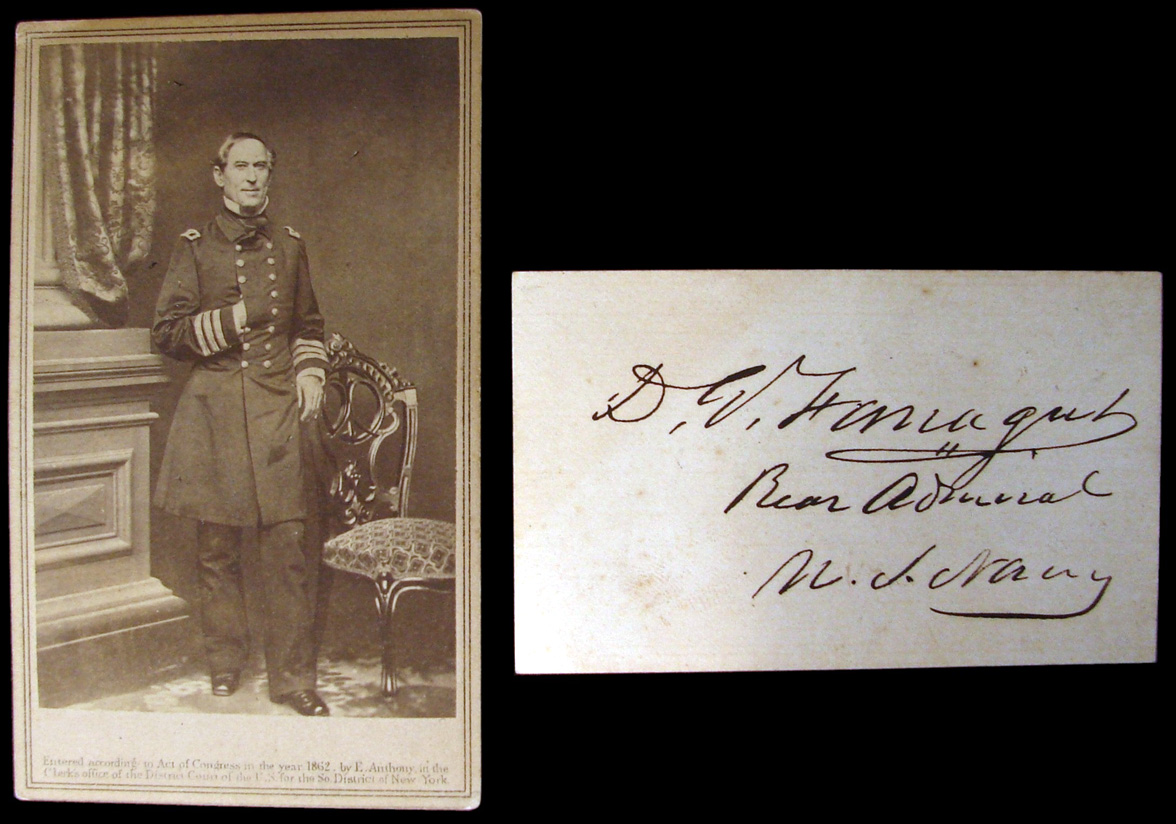 Entered according to Act of Congress in the year 1862, by E. Anthony, in the
Clerk's office of the District Court of the U.S. for the So. District of New York.
D. G. Farragut
Rear Admiral
U. S. Navy